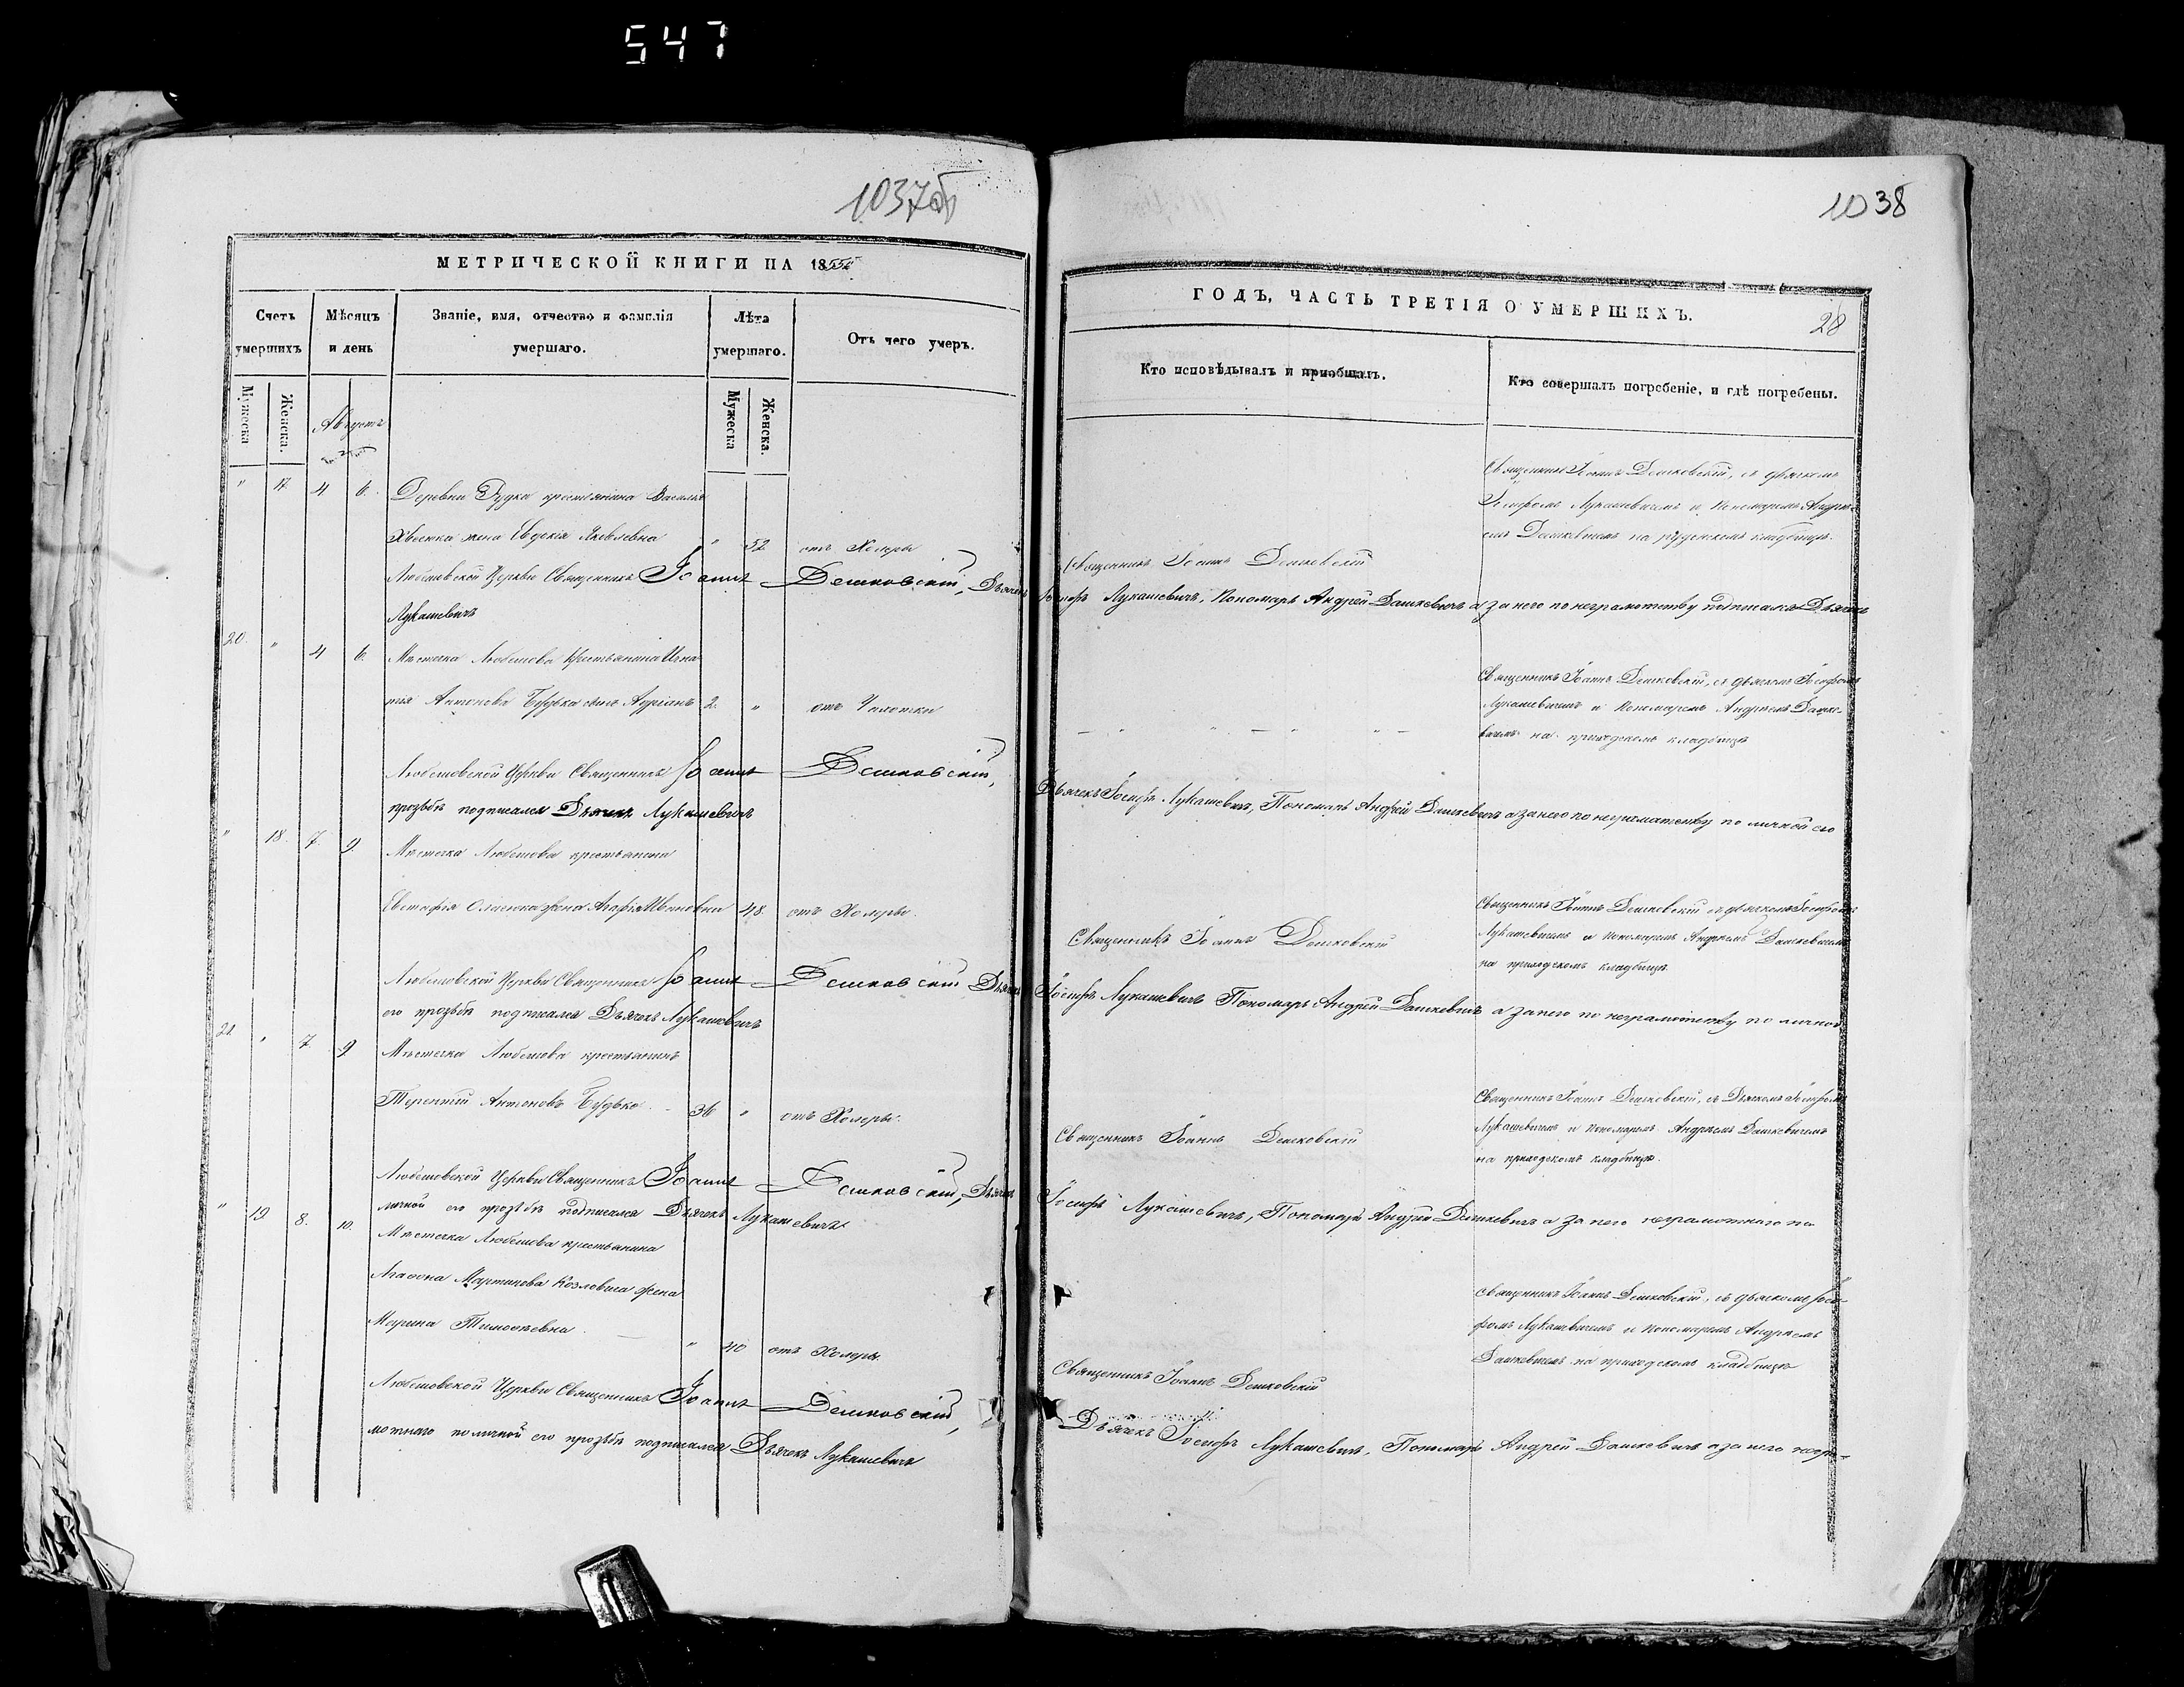 547
1037об
МЕТРИЧЕСКОЙ КНИГИ НА 1855й
Счетъ умершихъ
Мѣсяцъ и день
Званіе, имя, отчество и фамилія умершаго.
Лѣта умершаго.
Отъ чего умеръ.
Мужеска
Женска.
Августъ
Мужеска
Женска.
" 17. 4 6. Деревни Рудки крестьянина Василія
жена Евдокія Яковлевна " 52 отъ Холеры
Любешовской Церкви Священникъ Іоаннъ Дешковскій, Дьячекъ
Лукашевичъ
20. " 4 6. Мѣстечка Любешова Крестьянина Игна
тія Антонова Будька сынъ Адріанъ 2. " отъ Чахотки
Любешовской Церкви Священникъ Іоаннъ Дешковскій,
прозьбѣ подписался Дьячекъ Лукашевичъ
" 18. 7. 9. Мѣстечка Любешова крестьянина
Евстафія жена Агафія Ивановна 48. отъ Холеры.
Любешовской Церкви Священникъ Іоаннъ Дешковскій Дьячекъ
его прозьбѣ подписался Дьячекъ Лукашевичъ
21. " 7. 9 Мѣстечка Любешова крестьянинъ
Терентій Антоновъ Будько 36 " отъ Холеры.
Любешовской Церкви Священникъ Іоаннъ Дешковскій, Дьячекъ
личной его прозьбѣ подписался Дьячекъ Лукашевичъ
" 19 8. 10. Мѣстечка Любешова крестьянина
Агафона Мартинова Козловича жена
Марина Тимофѣевна " 40 отъ Холеры.
Любешовской Церкви Священникъ Іоаннъ Дешковскій,
мотнаго по личной его прозьбѣ подписался Дьячекъ Лукашевичъ
1038
ГОДЪ, ЧАСТЬ ТРЕТІЯ О УМЕРШИХЪ.
28
Кто исповѣдывалъ и пріобщалъ.
Кто совершалъ погребеніе, и гдѣ погребены.
Священникъ Іоаннъ Дешковскій, съ дьячкомъ
Іосифомъ Лукашевичемъ и Пономаремъ Андре-
емъ Дашкевичемъ на рудскомъ кладбищѣ.
Священникъ Іоаннъ Дешковскій
Іосифъ Лукашевичъ, Пономарь Андрей Дашкевичъ а за него по неграмотству подписался Дьячекъ
Священникъ Іоаннъ Дешковскій, съ дьячкомъ Іосифомъ
Лукашевичемъ и Пономаремъ Андреемъ Дашке-
вичемъ на приходскомъ кладбищѣ
Дьячекъ Іосифъ Лукашевичъ, Пономарь Андрей Дашкевичъ а за него по неграмотству по личной его
Священникъ Іоаннъ Дешковскій съ дьячкомъ Іосифомъ
Лукашевичемъ и Пономаремъ Андреемъ Дашкевичемъ
на приходскомъ кладбищѣ.
Священникъ Іоаннъ Дешковскій
Іосифъ Лукашевичъ Пономарь Андрей Дашкевичъ а за него по неграмотству по личной
Священникъ Іоаннъ Дешковскій, съ Дьячкомъ Іосифомъ
Лукашевичемъ и Пономаремъ Андреемъ Дашкевичемъ
на приходскомъ кладбищѣ.
Священникъ Іоаннъ Дешковскій
Іосифъ Лукашевичъ, Пономарь Андрей Дашкевичъ а за него неграмотнаго по
Священникъ Іоаннъ Дешковскій, съ дьячкомъ Іоси-
фомъ Лукашевичемъ и Пономаремъ Андреемъ
Дашкевичемъ на приходскомъ кладбищѣ
Священникъ Іоаннъ Дешковскій
Дьячекъ Іосифъ Лукашевичъ, Пономарь Андрей Дашкевичъ а за него негра-